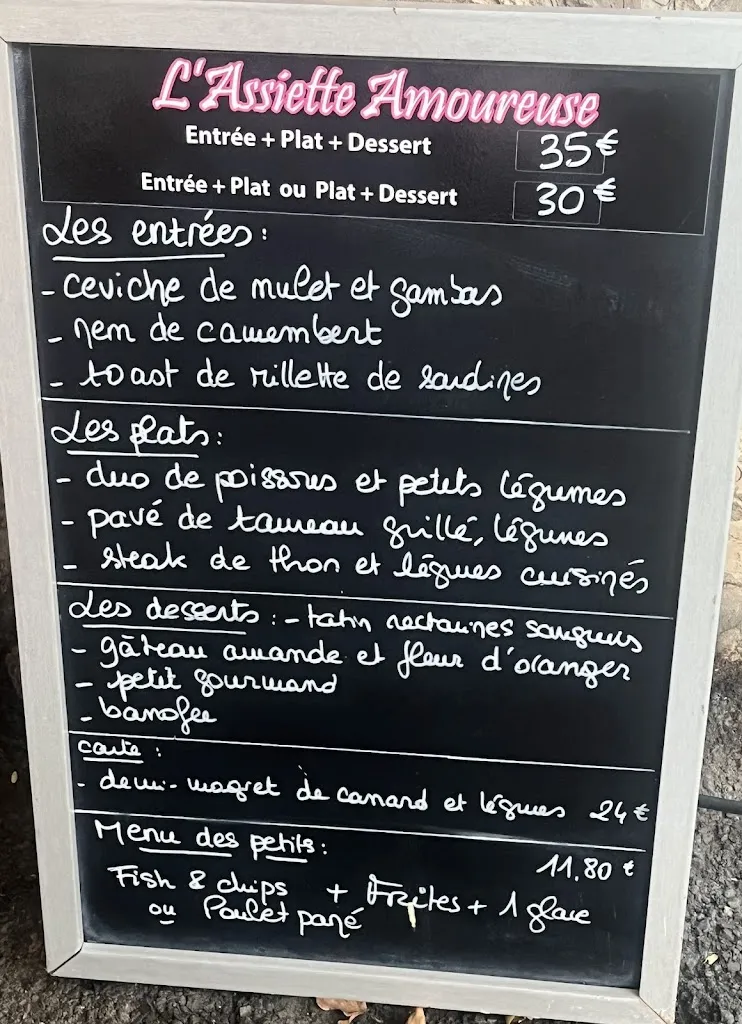 L'Assiette Amoureuse
Entrée + Plat + Dessert 35€
Entrée + Plat ou Plat + Dessert 30€
Les entrées :
- ceviche de mulet et gambas
- nem de camembert
- toast de rillette de sardines
Les plats :
- duo de poissons et petits légumes
- pavé de taureau grillé, légumes
- steak de thon et légumes cuisinés
Les desserts : - tatin nectarines sanguines
- gâteau amande et fleur d'oranger
- petit gourmand
- banofee
carte :
- demi-magret de canard et légumes 24€
Menu des petits : 11,80 €
Fish & chips + Frites + 1 glace
ou Poulet pané